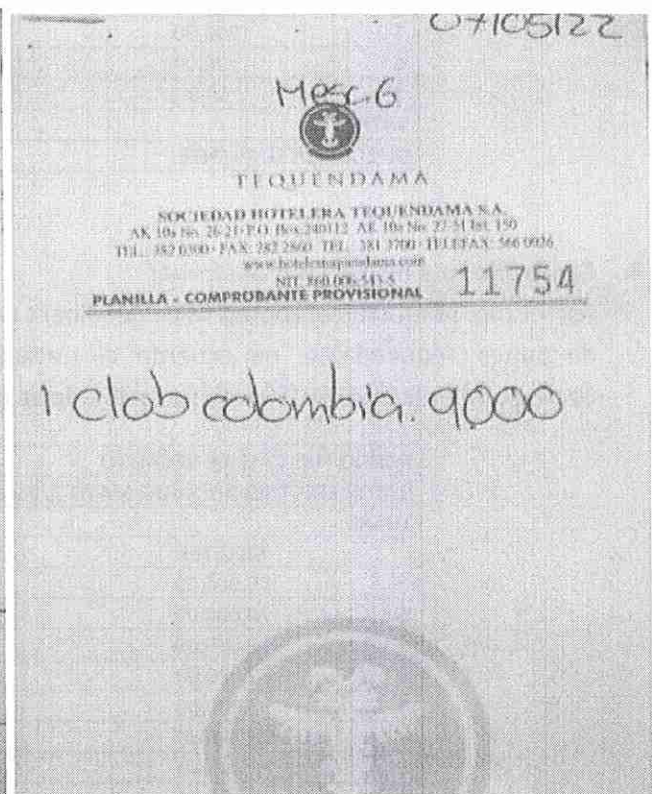 07/05/22
Mesa 6
TEQUENDAMA
SOCIEDAD HOTELERA TEQUENDAMA S.A.
AK 10a No. 26-21 P.O. Box 240112 AK 10a No. 27-51 Int. 150
TEL.: 382 0300 - FAX: 282 2860 TEL.: 381 3700 - TELEFAX: 566 0926
www.hotelestequendama.com
NIT. 860.006.543-5
PLANILLA - COMPROBANTE PROVISIONAL 11754
1 Clob colombia. 9000